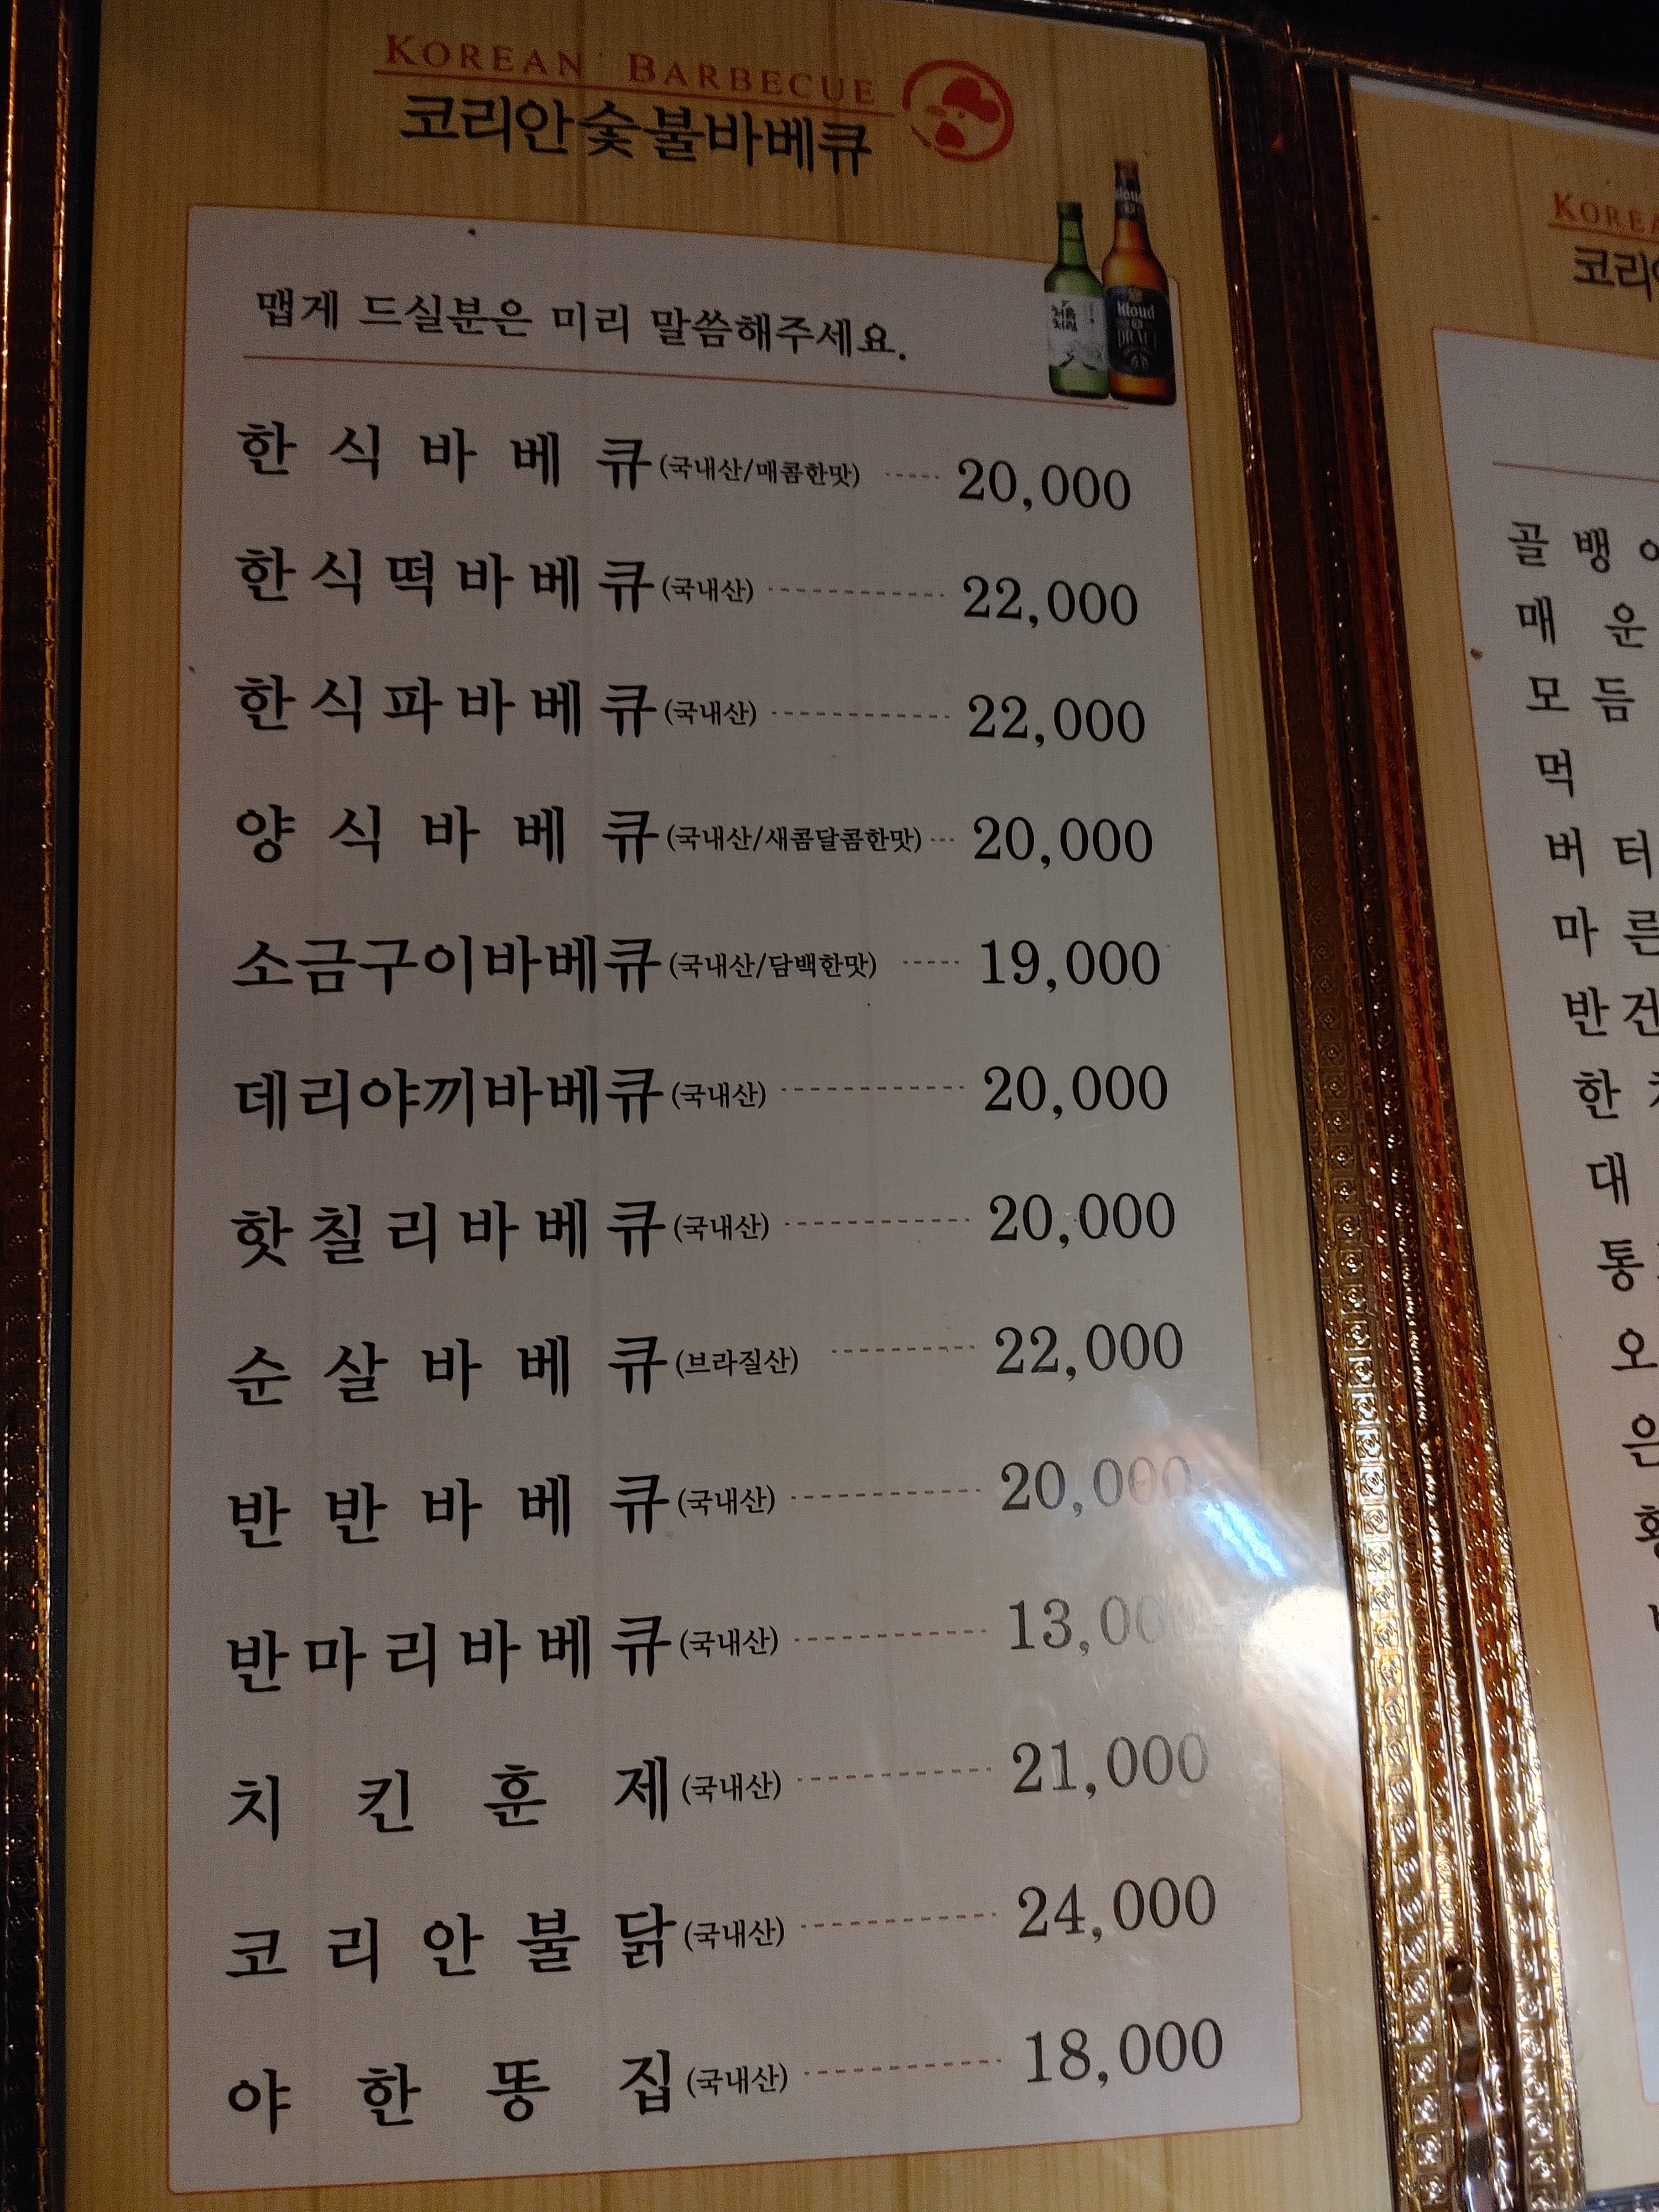 KOREAN BARBECUE
코리안숯불바베큐
맵게 드실분은 미리 말씀해주세요.
처음처럼
Kloud
한식바베큐(국내산/매콤한맛) 20,000
한식떡바베큐(국내산) 22,000
한식파바베큐(국내산) 22,000
양식바베큐(국내산/새콤달콤한맛) 20,000
소금구이바베큐(국내산/담백한맛) 19,000
데리야끼바베큐(국내산) 20,000
핫칠리바베큐(국내산) 20,000
순살바베큐(브라질산) 22,000
반반바베큐(국내산) 20,000
반마리바베큐(국내산) 13,000
치킨훈제(국내산) 21,000
코리안불닭(국내산) 24,000
야한똥집(국내산) 18,000
KOREA
코리안
골뱅이
매운
모듬
먹
버터
마른
반건
한치
대
통
오
은
황